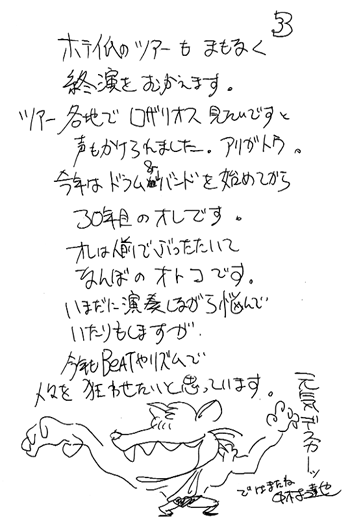 33
ホテイ氏のツアーも まもなく
終演をむかえます。
ツアー各地で ロザリオス見たいですと
声もかけられました。アリガトウ。
今年はドラム&バンドを始めてから
30年目のオレです。
オレは人前でぶったたいて
なんぼの オトコです。
いまだに演奏しながら悩んで
いたりもしますが
今年もBEATやリズムで
人々を 狂わせたいと思っています。
元気デスカーッ
ではまたね
中村達也